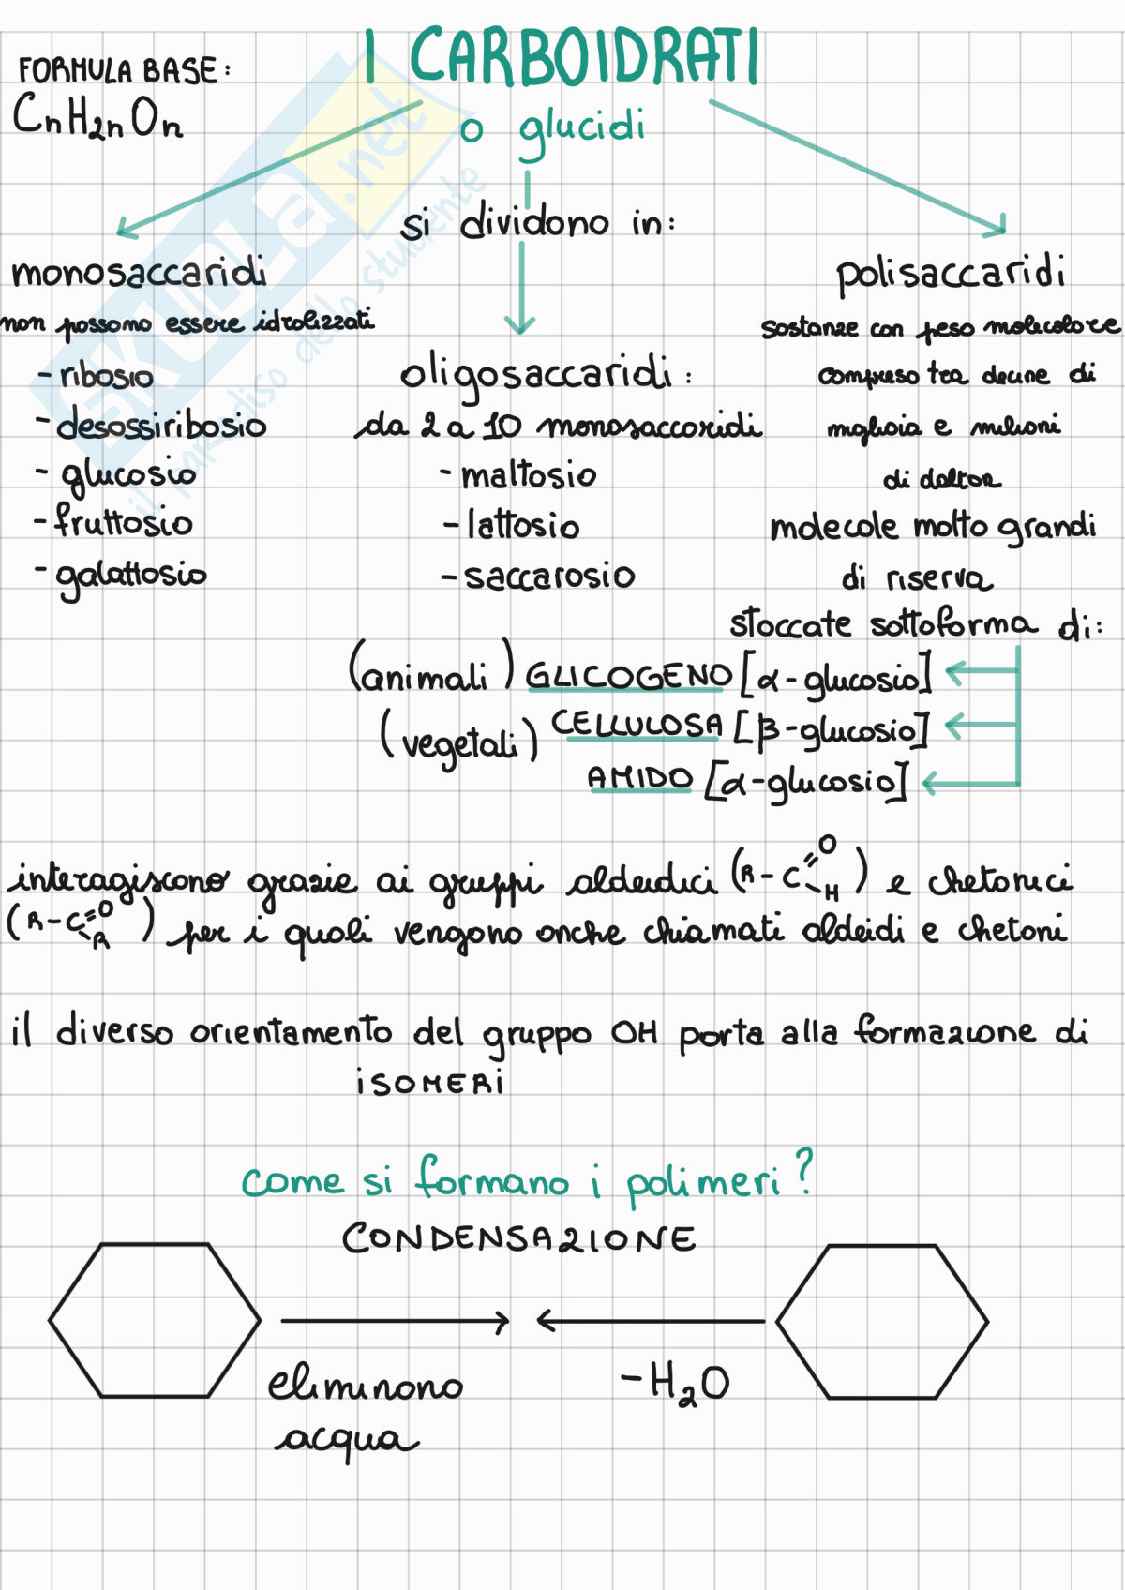 I CARBOIDRATI
FORMULA BASE:
CnH2nOn
o glucidi
si dividono in:
monosaccaridi
non possono essere idrolizzati
- ribosio
- desossiribosio
- glucosio
- fruttosio
- galattosio
oligosaccaridi:
da 2 a 10 monosaccaridi
- maltosio
- lattosio
- saccarosio
polisaccaridi
sostanze con peso molecolare
compreso tra decine di
migliaia e milioni
di dalton
molecole molto grandi
di riserva
stoccate sottoforma di:
(animali) GLICOGENO [α-glucosio]
(vegetali) CELLULOSA [β-glucosio]
AMIDO [α-glucosio]
interagiscono grazie ai gruppi aldeidici (R-C=O -H) e chetonici
(R-C=O -R) per i quali vengono anche chiamati aldeidi e chetoni
il diverso orientamento del gruppo OH porta alla formazione di
ISOMERI
come si formano i polimeri?
CONDENSAZIONE
eliminano
acqua
-H2O
SKUOLA.net
il paradiso dello studente